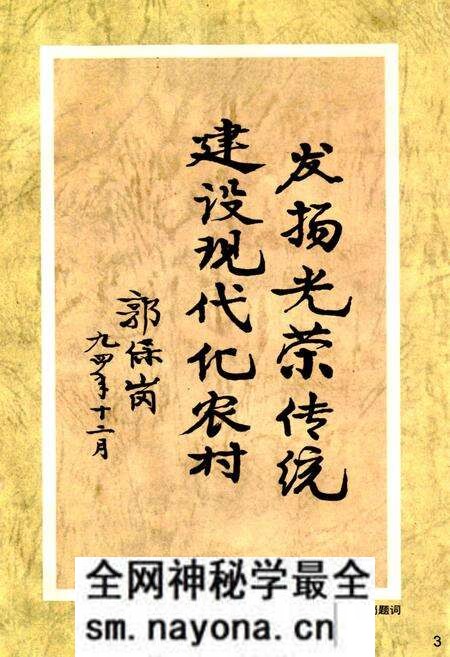 发扬光荣传统
建设现代化农村
郭保岗
九四年十二月
题词
全网神秘学最全
sm.nayona.cn
3